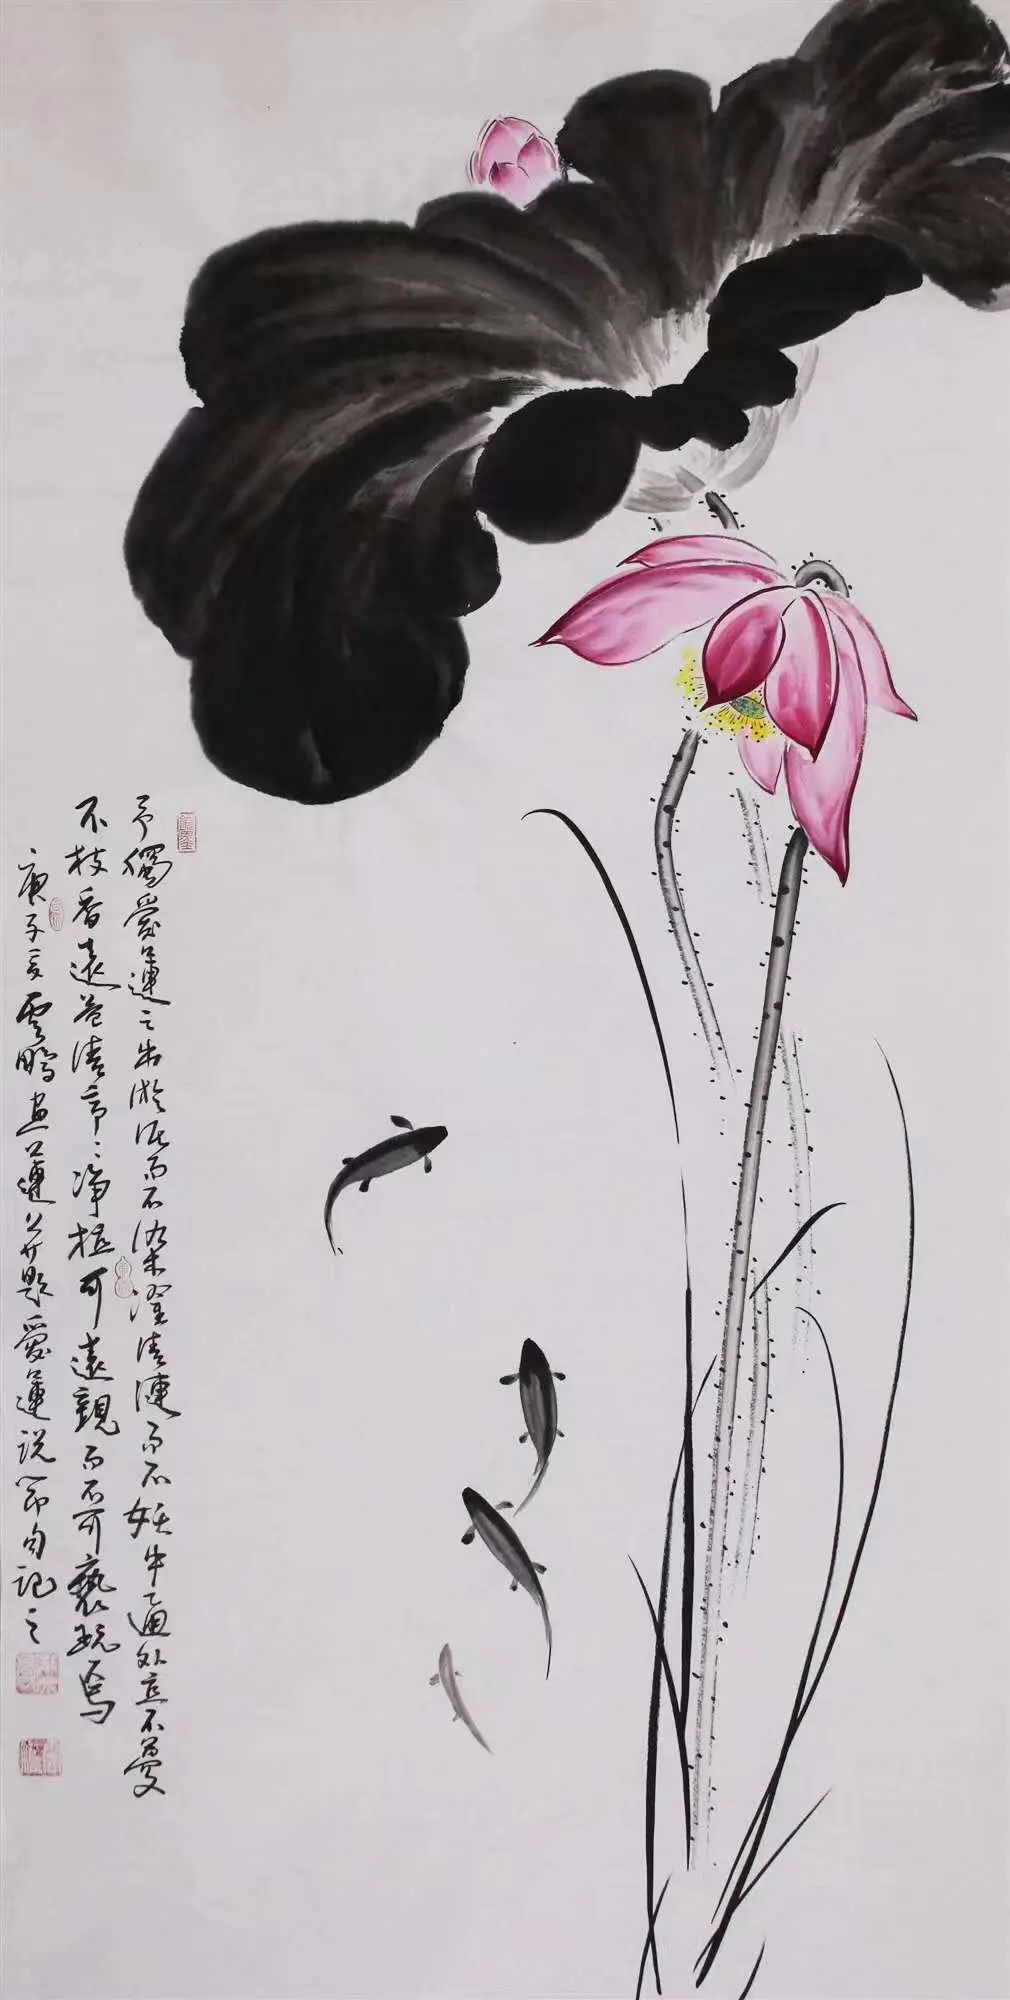 予獨愛蓮之出淤泥而不染濯清漣而不妖中通外直不蔓
不枝香遠益清亭亭淨植可遠觀而不可褻玩焉
庚子夏雲鵬畫蓮并題愛蓮說節句記之